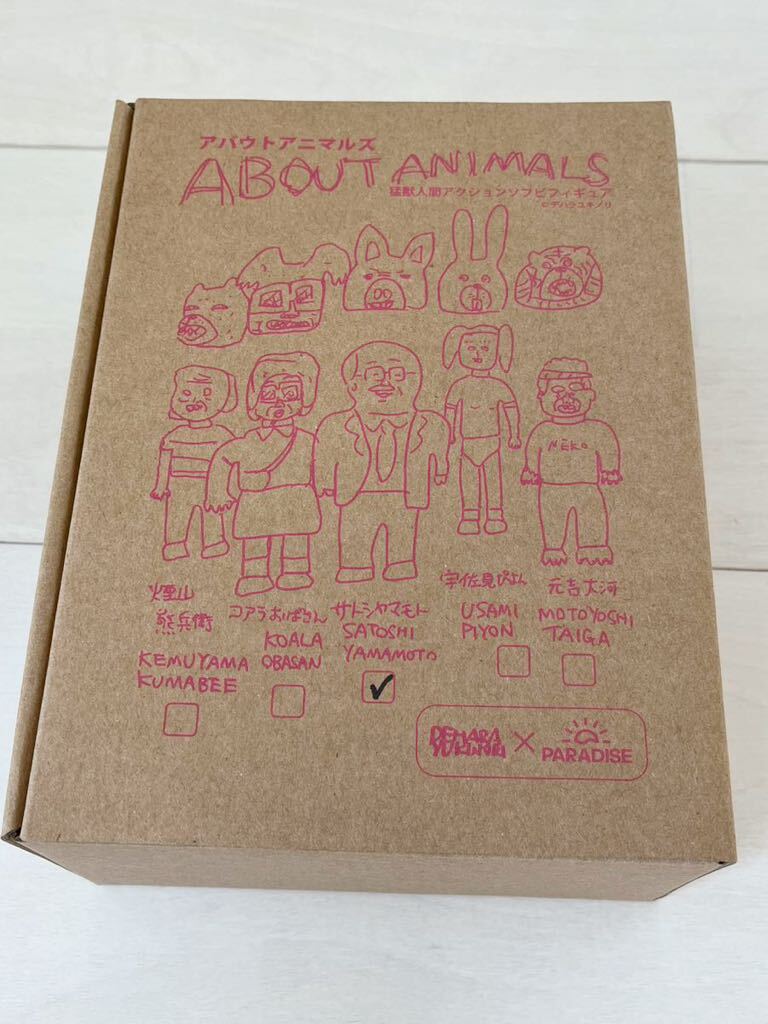 アバウトアニマルズ
ABOUT ANIMALS
猛獣人間アクションソフビフィギュア
©デハラユキノリ
NEKO
煙山
熊兵衛
KEMUYAMA
KUMABEE
コアラおばさん
KOALA
OBASAN
サトシヤマモト
SATOSHI
YAMAMOTO
宇佐見ぴよん
USAMI
PIYON
元吉大河
MOTOYOSHI
TAIGA
DEHARA
YUKINORI
×
PARADISE